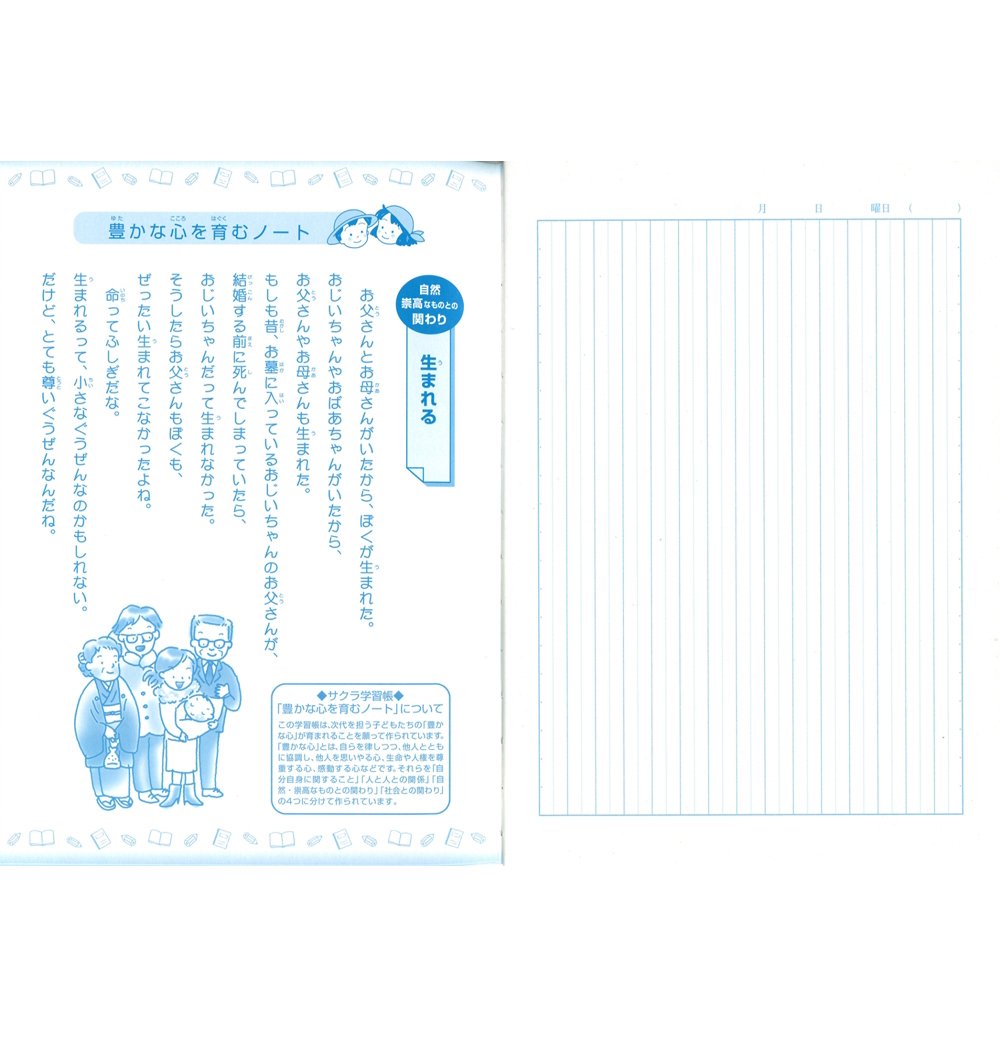 豊かな心を育むノート
自然
崇高なものとの
関わり
生まれる
お父さんとお母さんがいたから、ぼくが生まれた。
おじいちゃんやおばあちゃんがいたから、
お父さんやお母さんも生まれた。
もしも昔、お墓に入っているおじいちゃんのお父さんが、
結婚する前に死んでしまっていたら、
おじいちゃんだって生まれなかった。
そうしたらお父さんもぼくも、
ぜったい生まれてこなかったよね。
命ってふしぎだな。
生まれるって、小さなぐうぜんなのかもしれない。
だけど、とても尊いぐうぜんなんだね。
◆サクラ学習帳◆
「豊かな心を育むノート」について
この学習帳は、次代を担う子どもたちの「豊か
な心」が育まれることを願って作られています。
「豊かな心」とは、自らを律しつつ、他人ととも
に協調し、他人を思いやる心、生命や人権を尊
重する心、感動する心などです。それらを「自
分自身に関すること」「人と人との関係」「自
然・崇高なものとの関わり」「社会との関わり」
の4つに分けて作られています。
月 日 曜日 ( )